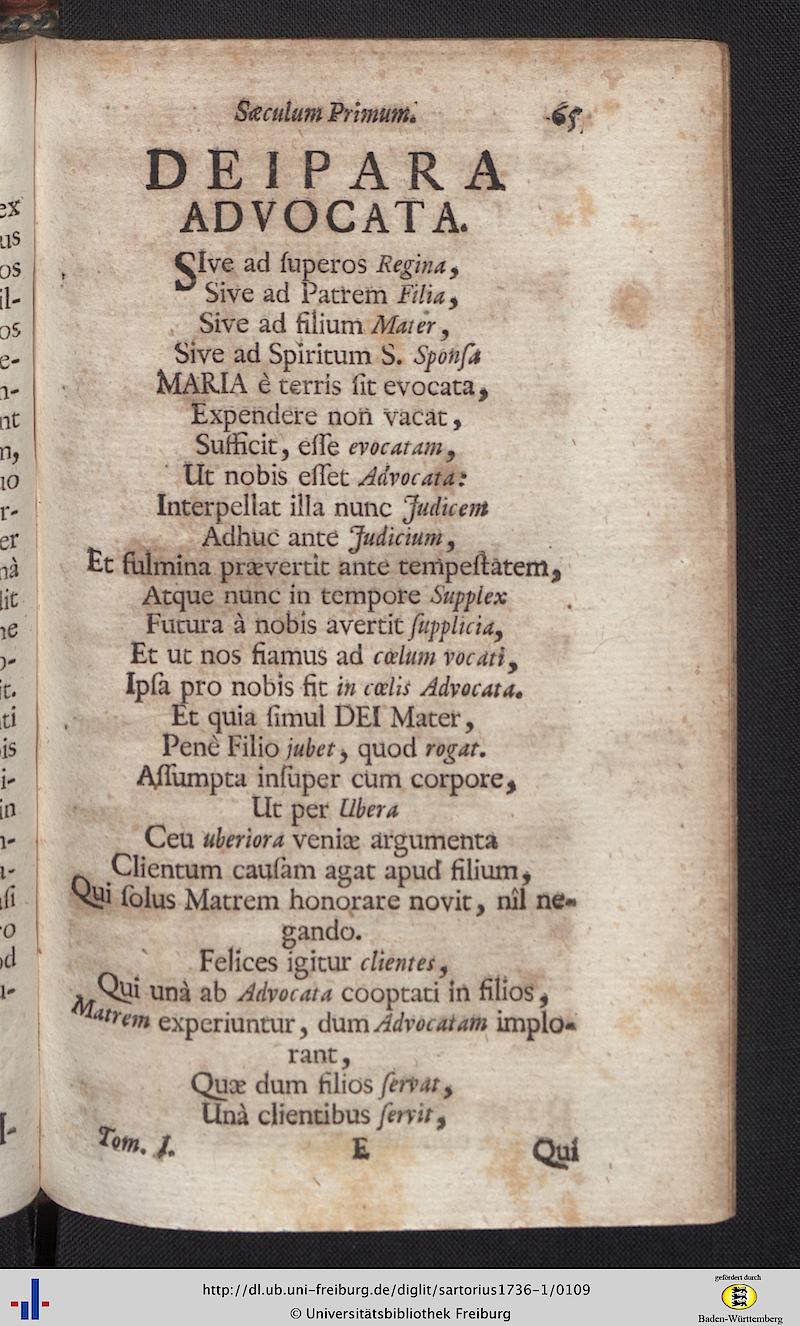 Sæculum Primum.
65
DEIPARA
ADVOCATA.
SIve ad ſuperos Regina,
Sive ad Patrem Filia,
Sive ad filium Mater,
Sive ad Spiritum S. Sponſa
MARIA è terris ſit evocata,
Expendere non vacat,
Sufficit, eſſe evocatam,
Ut nobis eſſet Advocata:
Interpellat illa nunc Judicem
Adhuc ante Judicium,
Et fulmina prævertit ante tempeſtatem,
Atque nunc in tempore Supplex
Futura à nobis avertit ſupplicia,
Et ut nos fiamus ad cœlum vocati,
Ipſa pro nobis fit in cœlis Advocata.
Et quia ſimul DEI Mater,
Penè Filio jubet, quod rogat.
Aſſumpta inſuper cum corpore,
Ut per Ubera
Ceu uberiora veniæ argumenta
Clientum cauſam agat apud filium,
Qui ſolus Matrem honorare novit, nîl ne-
gando.
Felices igitur clientes,
Qui unà ab Advocata cooptati in filios,
Matrem experiuntur, dum Advocatam implo-
rant,
Quæ dum filios ſervat,
Unà clientibus ſervit,
Tom. I.
E
Qui
ex
us
os
il-
os
e-
n-
nt
m,
r-
er
nà
lit
ne
it.
ti
is
i-
in
ſi
http://dl.ub.uni-freiburg.de/diglit/sartorius1736-1/0109
© Universitätsbibliothek Freiburg
gefördert durch
Baden-Württemberg